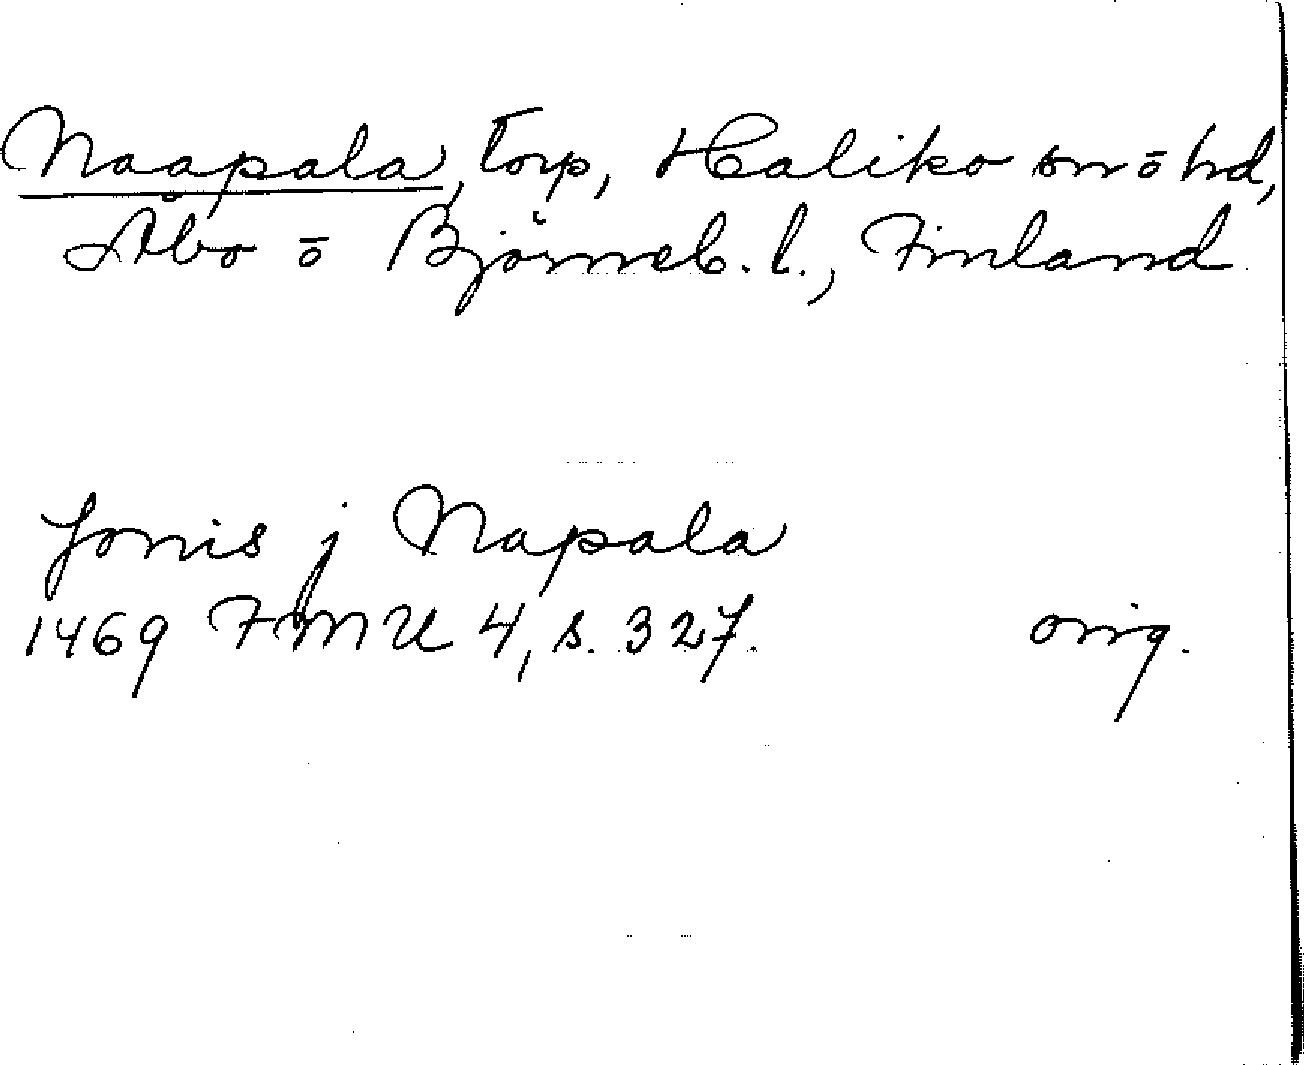 Naapala, torp, Haliko sn ō hd,
Åbo ō Björneb. l., Finland
Jonis j Napala
1469 FMU 4, s. 327. orig.